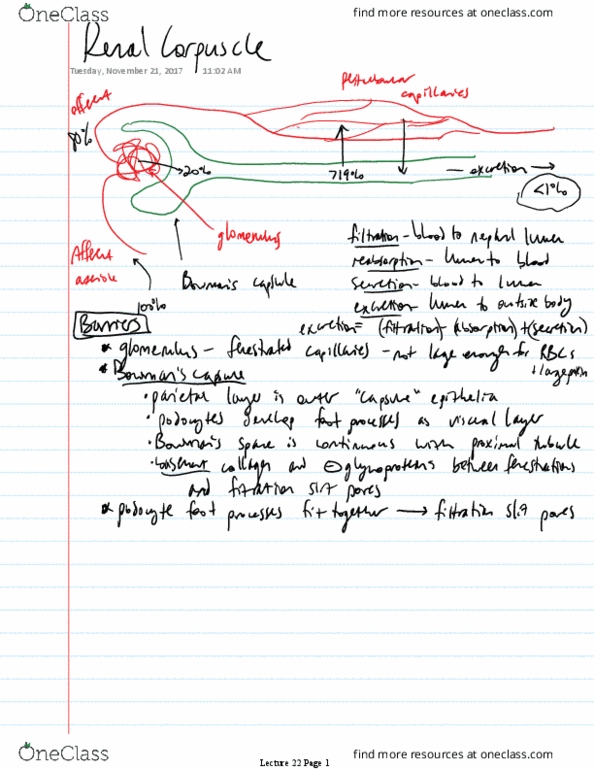 OneClass
find more resources at oneclass.com
Renal Corpuscle
Tuesday, November 21, 2017 11:02 AM
efferent
80%
peritubular
capillaries
20%
719%
excretion
<1%
glomerulus
Afferent
arteriole
100%
Bowman's capsule
filtration - blood to nephral lumen
reabsorption - lumen to blood
secretion - blood to lumen
excretion - lumen to outside body
excretion = (filtration) - (absorption) + (secretion)
Barriers
* glomerulus - fenestrated capillaries - not large enough for RBCs
+ large protein
* Bowman's capsule
• parietal layer is outer "capsule" epithelia
• podocytes develop foot processes as visceral layer
• Bowman's space is continuous with proximal tubule
• basement collagen and ⊖ glycoproteins between fenestrations
and filtration slit pores
* podocyte foot processes fit together → filtration slit pores
OneClass
find more resources at oneclass.com
Lecture 22 Page 1